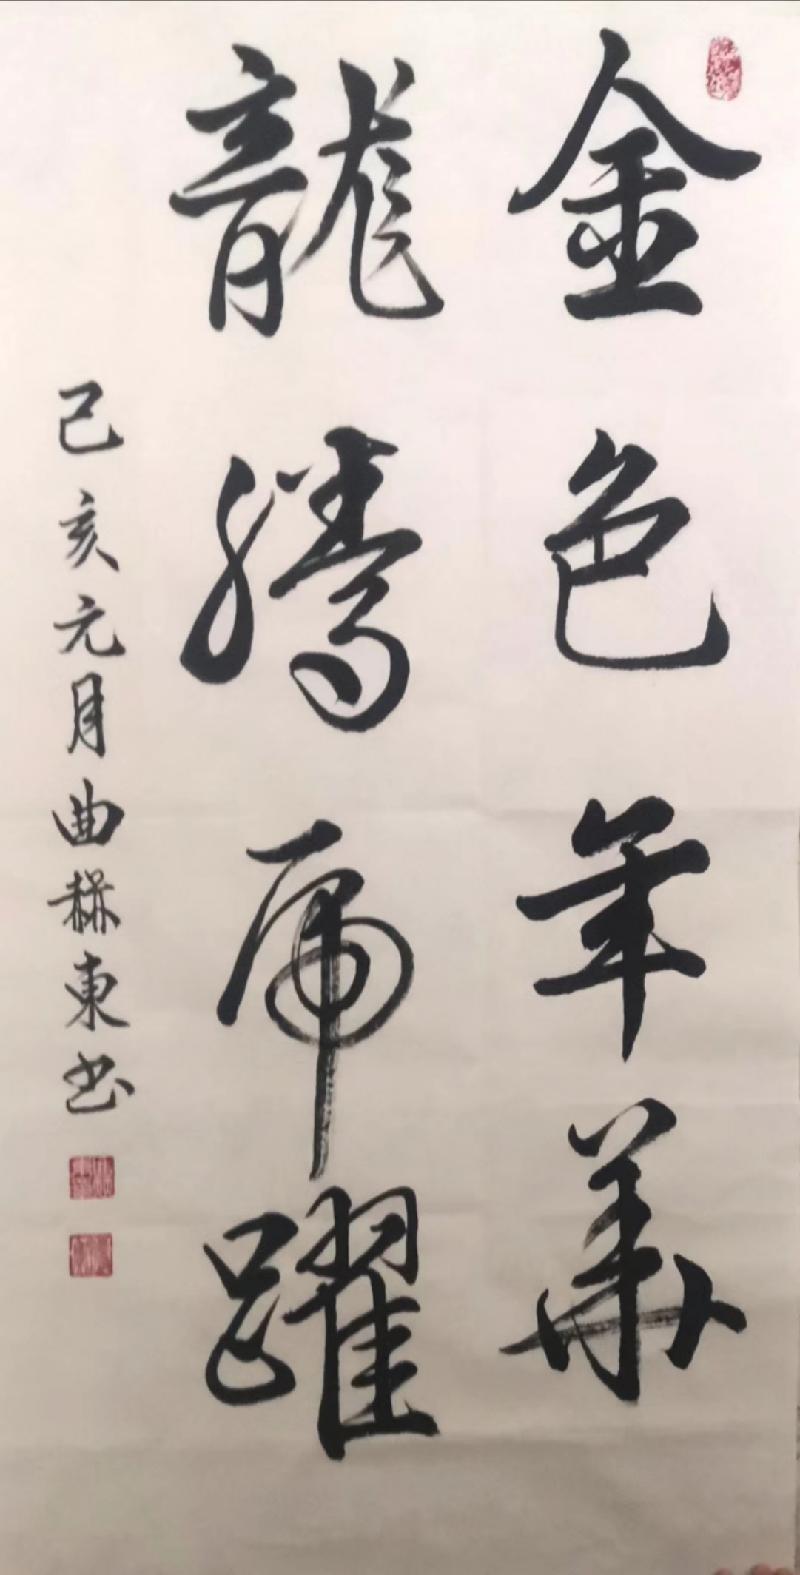 金色年華
龍騰虎躍
己亥元月曲赫東书